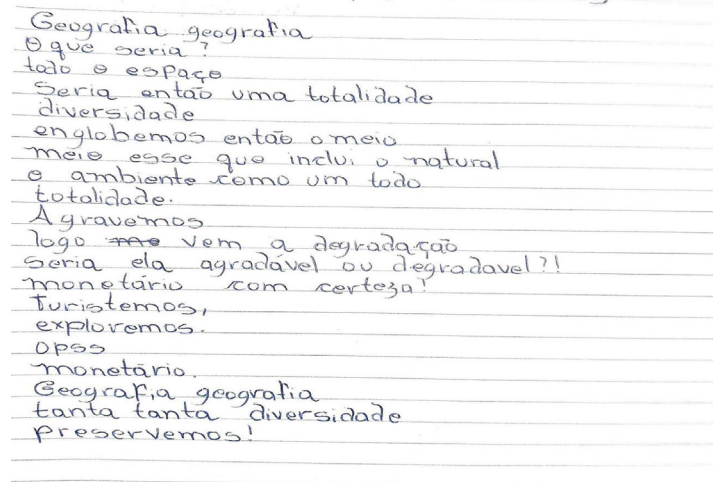 Geografia geografia
O que seria ?
todo o espaço
Seria então uma totalidade
diversidade
englobemos então o meio
meio esse que inclui o natural
o ambiente como um todo
totalidade.
Agravemos
logo vem a degradação
seria ela agradável ou degradavel?!
monetário com certeza!
Turistemos,
exploremos.
opss
monetário.
Geografia geografia
tanta tanta diversidade
preservemos!